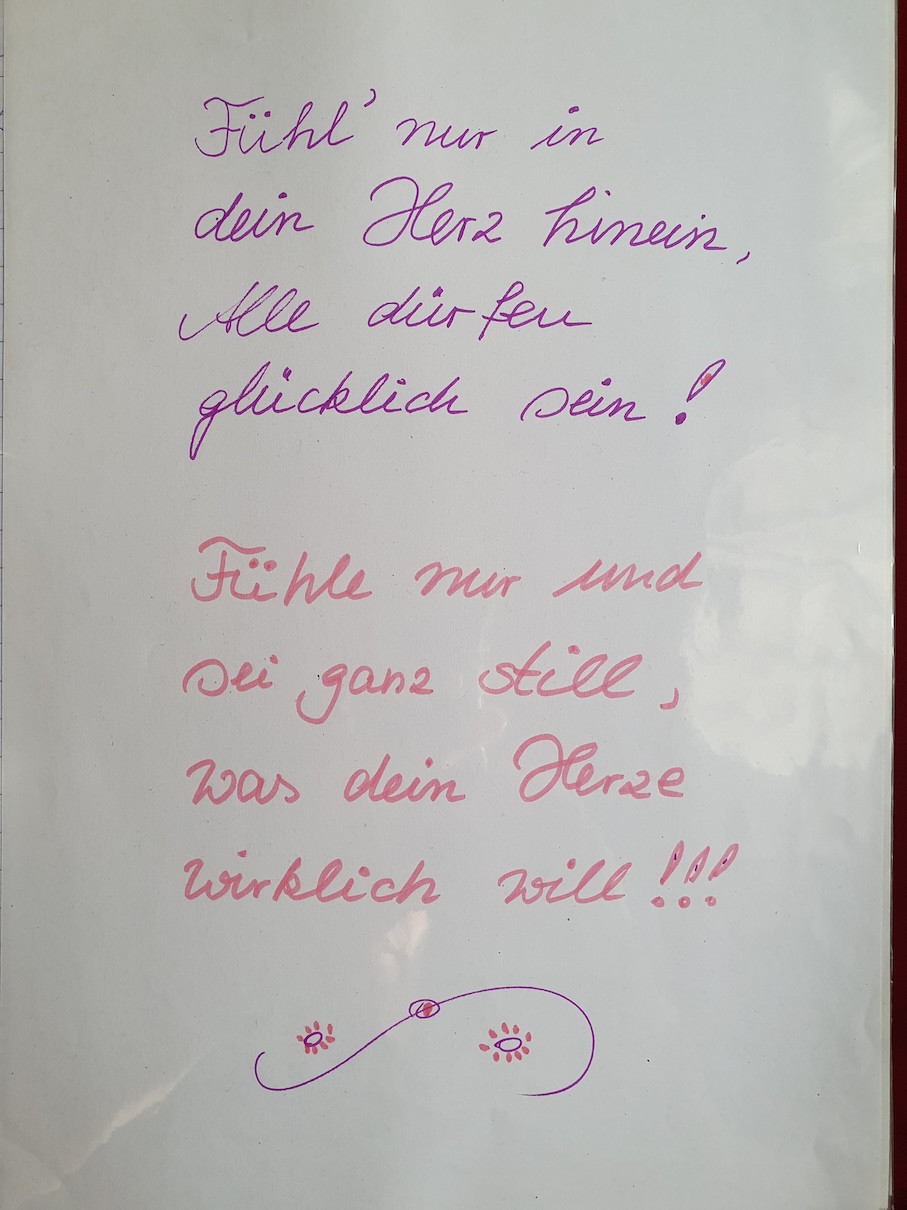 Fühl' nur in
dein Herz hinein,
Alle dürfen
glücklich sein!
Fühle nur und
sei ganz still,
was dein Herze
wirklich will!!!